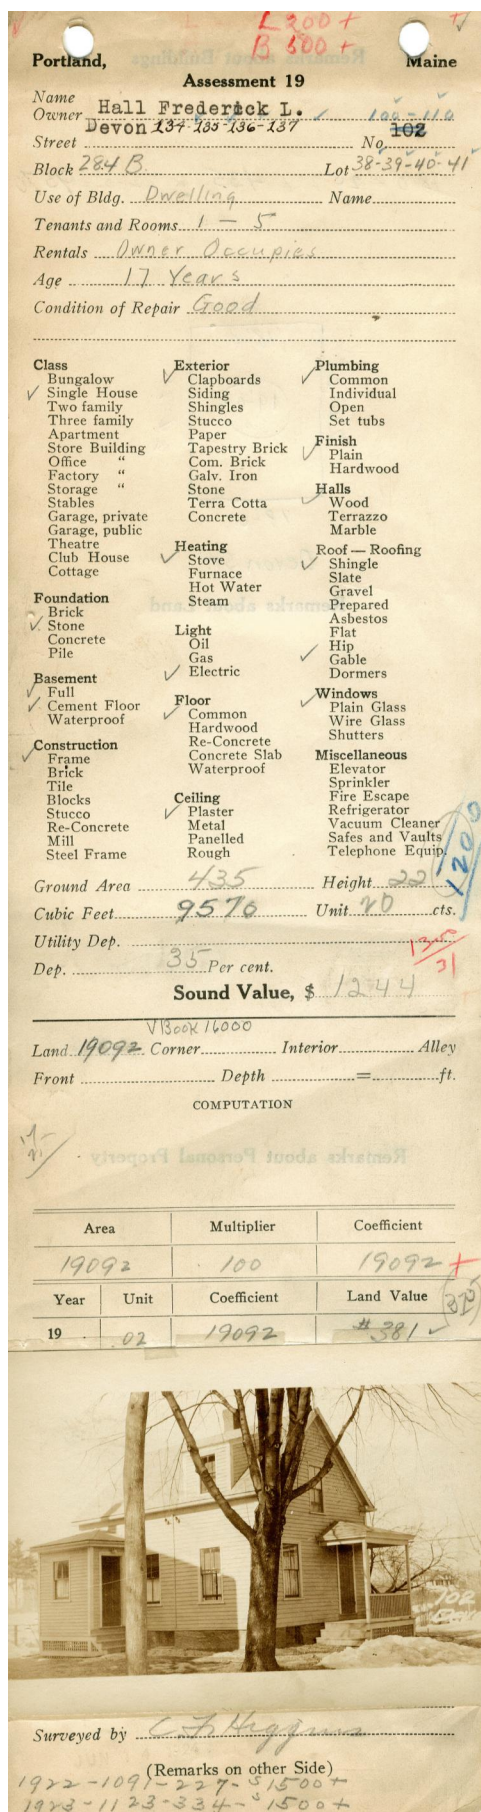 L 200 +
B 500 +
Portland, Maine
Assessment 19
Name
Owner Hall Frederick L. 100-110
Devon 134-135-136-137 102
Street No.
Block 284 B Lot 38-39-40-41
Use of Bldg. Dwelling Name
Tenants and Rooms 1 - 5
Rentals Owner Occupies
Age 17 Years
Condition of Repair Good
Class
Bungalow
✓ Single House
Two family
Three family
Apartment
Store Building
Office "
Factory "
Storage "
Stables
Garage, private
Garage, public
Theatre
Club House
Cottage
Foundation
Brick
✓ Stone
Concrete
Pile
Basement
✓ Full
✓ Cement Floor
Waterproof
Construction
✓ Frame
Brick
Tile
Blocks
Stucco
Re-Concrete
Mill
Steel Frame
Exterior
✓ Clapboards
Siding
Shingles
Stucco
Paper
Tapestry Brick
Com. Brick
Galv. Iron
Stone
Terra Cotta
Concrete
Heating
✓ Stove
Furnace
Hot Water
Steam
Light
Oil
Gas
✓ Electric
Floor
✓ Common
Hardwood
Re-Concrete
Concrete Slab
Waterproof
Ceiling
✓ Plaster
Metal
Panelled
Rough
Plumbing
✓ Common
Individual
Open
Set tubs
Finish
✓ Plain
Hardwood
Halls
✓ Wood
Terrazzo
Marble
Roof — Roofing
✓ Shingle
Slate
Gravel
Prepared
Asbestos
Flat
Hip
✓ Gable
Dormers
Windows
✓ Plain Glass
Wire Glass
Shutters
Miscellaneous
Elevator
Sprinkler
Fire Escape
Refrigerator
Vacuum Cleaner
Safes and Vaults
Telephone Equip.
1200
Ground Area 435 Height 22
Cubic Feet 9570 Unit 20 cts.
Utility Dep.
31
Dep. 35 Per cent.
Sound Value, $ 1244
V Book 16000
Land 19092 Corner Interior Alley
Front Depth = ft.
COMPUTATION
Remarks about Personal Property
Area Multiplier Coefficient
19092 100 19092 +
Year Unit Coefficient Land Value
375
19 02 19092 # 381 ✓
102
Surveyed by C. F. Higgins
(Remarks on other Side)
1922-1091-227-$1500+
1923-1123-334-$1500+